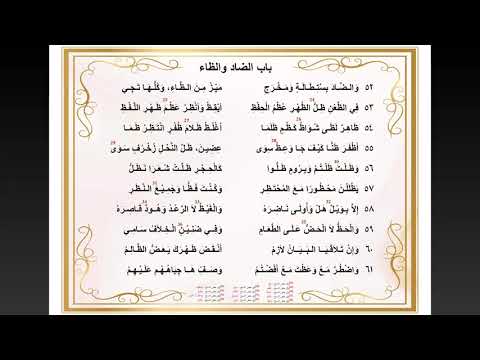 باب الضاد والظاء
٥٢ وَالضَّادَ بِسْتِطَالَةٍ وَمَخْرَجِ مَيِّزْ مِنَ الظَّاءِ، وَكُلُّهَا تَجِي
٥٣ فِي الظَّعْنِ ظِلَّ الظُّهْرَ عُظْمُ الْحِفْظِ أَيْقِظْ وَأَنْظِرْ عَظْمَ ظَهْرِ اللَّفْظِ
٥٤ ظَاهِرْ لَظَى شُوَاظِ كَظْمِ ظَلَمَا أُغْلُظْ ظَلَامَ ظُفْرٍ انْتَظِرْ ظَمَا
٥٥ أَظْفَرَ ظَنًّا كَيْفَ جَا وَعِظْ سِوَى عِضِينَ، ظَلَّ النَّحْلِ زُخْرُفٍ سَوَى
٥٦ وَظَلْتَ ظَلْتُمْ وَبِرُومٍ ظَلُّوا كَالْحِجْرِ ظَلَّتْ شُعَرَا نَظَلُّ
٥٧ يَظْلَلْنَ مَحْظُورًا مَعَ الْمُحْتَظِرِ وَكُنْتَ فَظًّا وَجَمِيعَ النَّظَرِ
٥٨ إِلَّا بِوَيْلٌ هَلْ وَأُولَى نَاضِرَهْ وَالْغَيْظُ لَا الرَّعْدُ وَهُودٌ قَاصِرَهْ
٥٩ وَالْحَظُّ لَا الْحَضُّ عَلَى الطَّعَامِ وَفِي ضَنِينٍ الْخِلَافُ سَامِي
٦٠ وَإِنْ تَلَاقَيَا الْبَيَانُ لَازِمُ أَنْقَضَ ظَهْرَكَ يَعَضُّ الظَّالِمُ
٦١ وَاضْطُرَّ مَعْ وَعَظْتَ مَعْ أَفَضْتُمُ وَصَفِّ هَا جِبَاهُهُمْ عَلَيْهِمُ